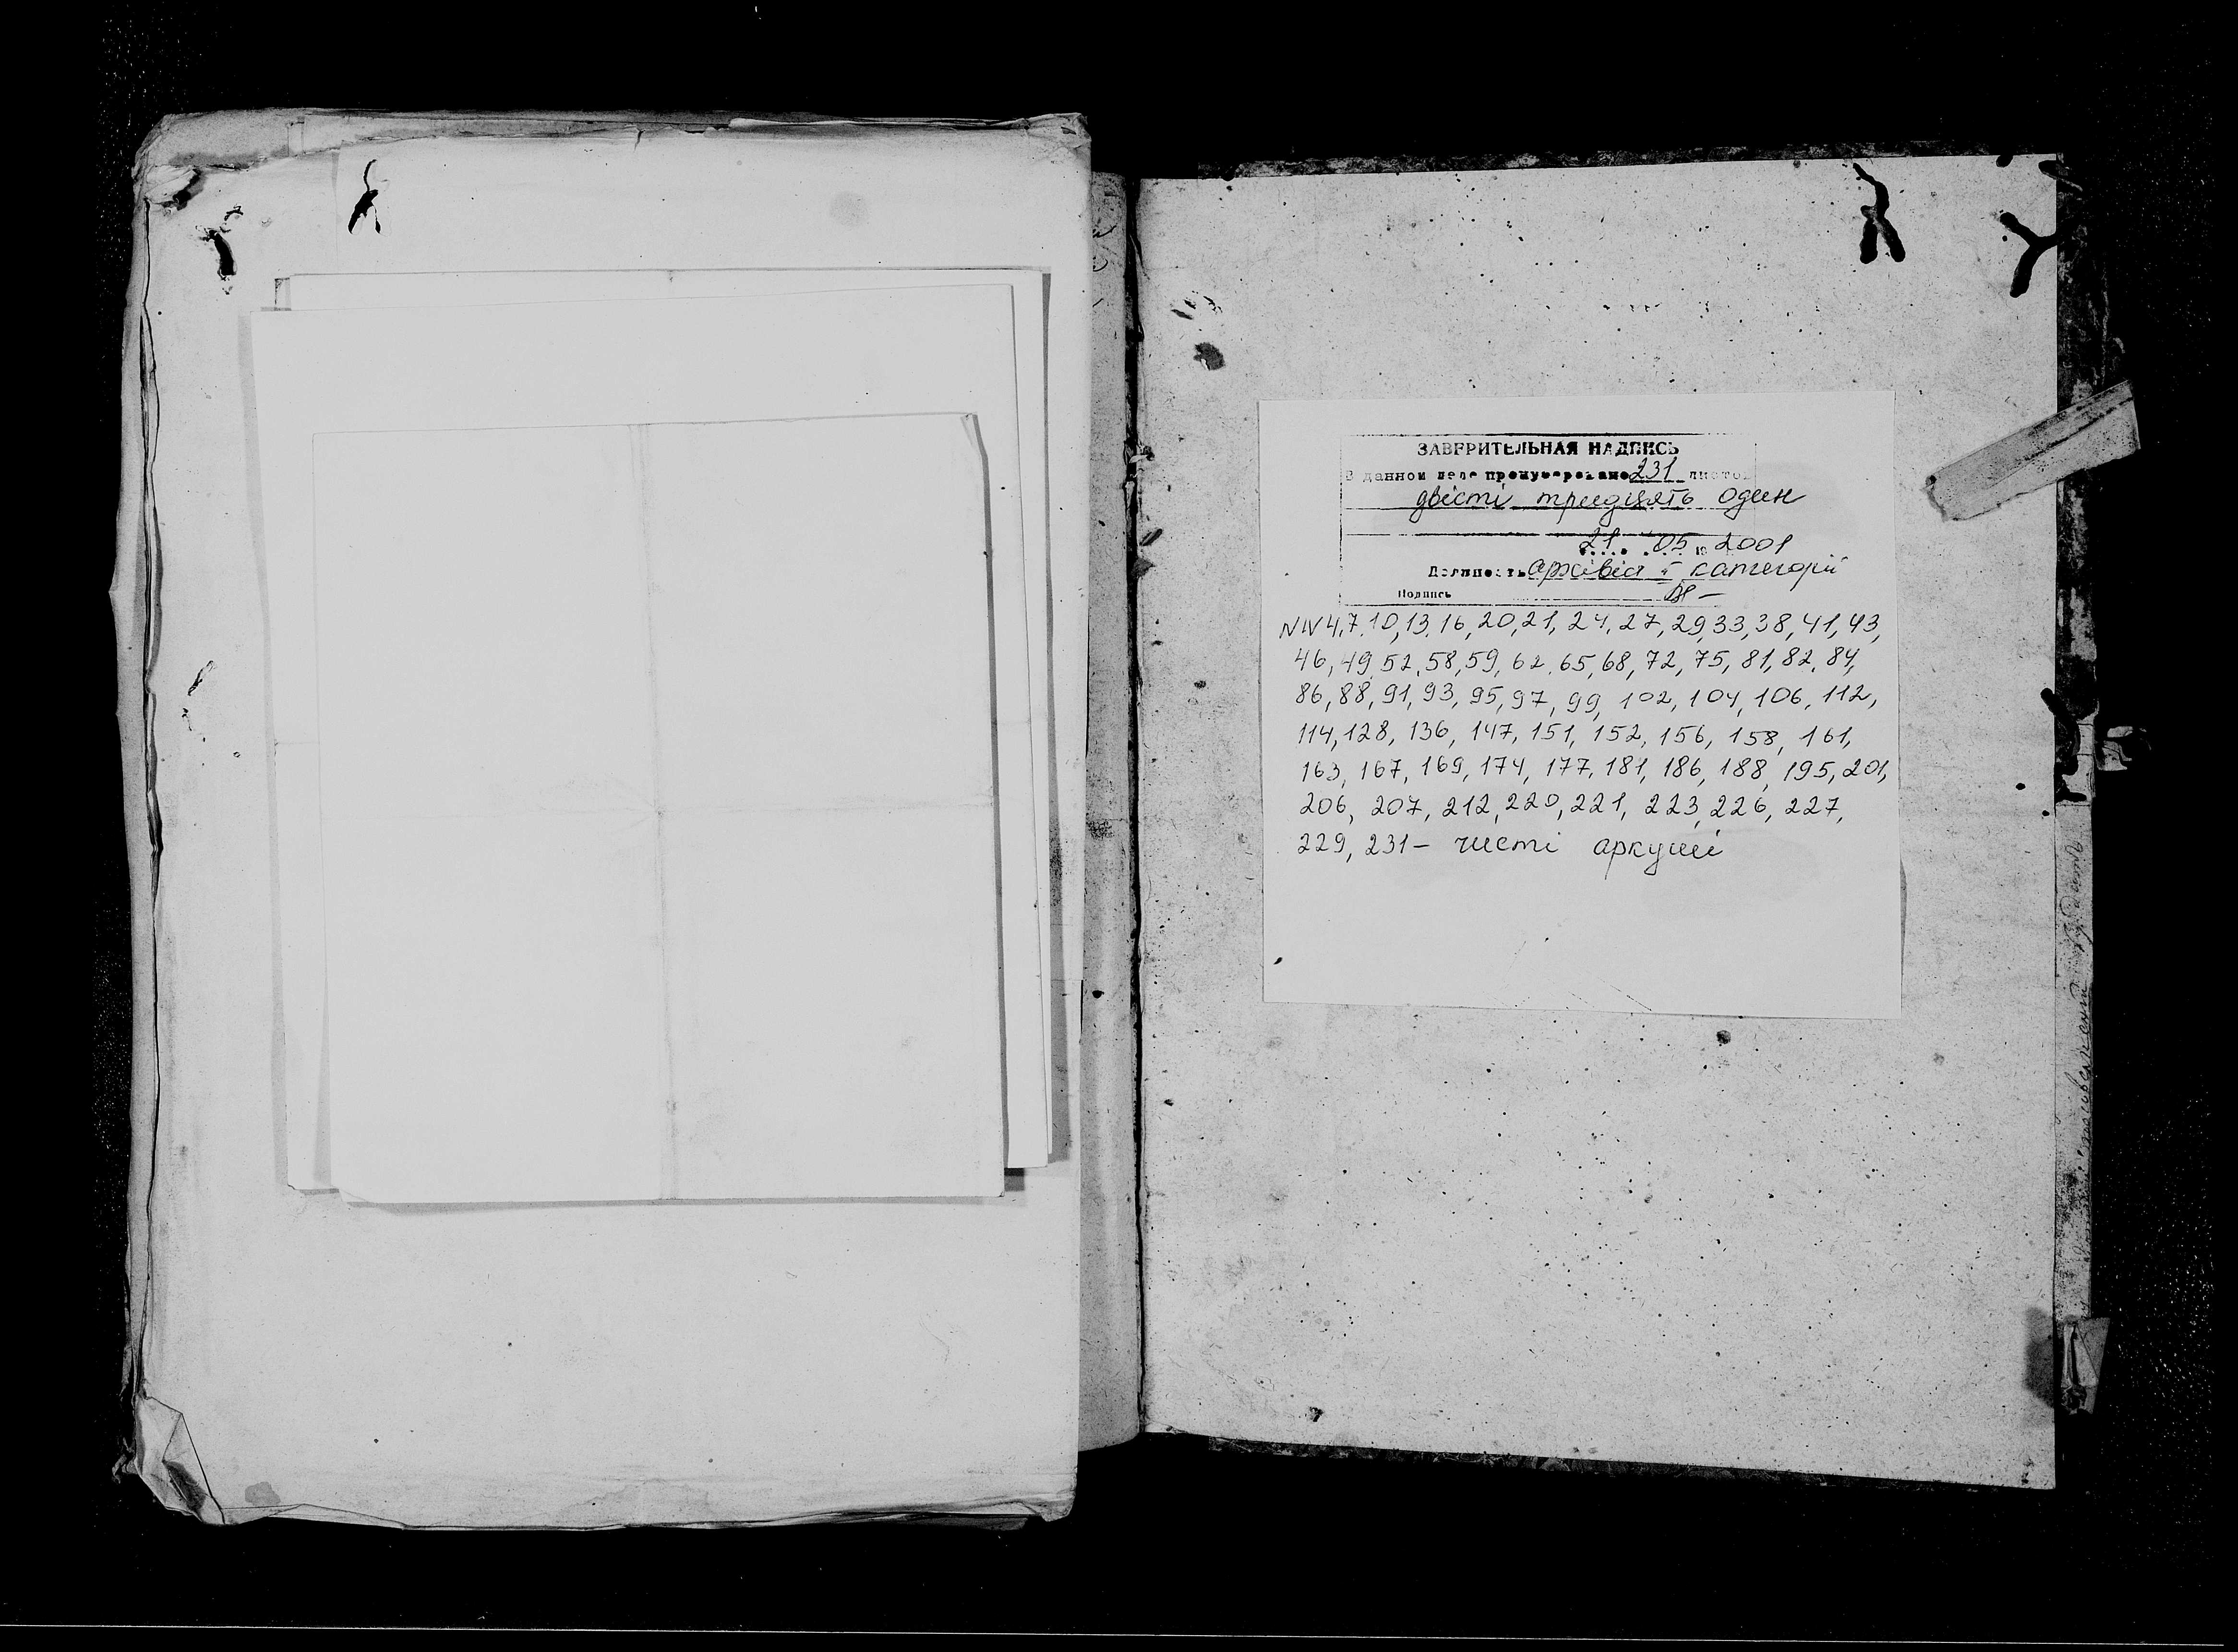 ЗАВЕРИТЕЛЬНАЯ НАДПИСЬ
В данном деле пронумеровано 231 листов
двісті тридцять один
21 05 19 2001
Должность архівіст І категорії
Подпись
NN 4, 7, 10, 13, 16, 20, 21, 24, 27, 29, 33, 38, 41, 43,
46, 49, 52, 58, 59, 62, 65, 68, 72, 75, 81, 82, 84,
86, 88, 91, 93, 95, 97, 99, 102, 104, 106, 112,
114, 128, 136, 147, 151, 152, 156, 158, 161,
163, 167, 169, 174, 177, 181, 186, 188, 195, 201,
206, 207, 212, 220, 221, 223, 226, 227,
229, 231 – чисті аркуші